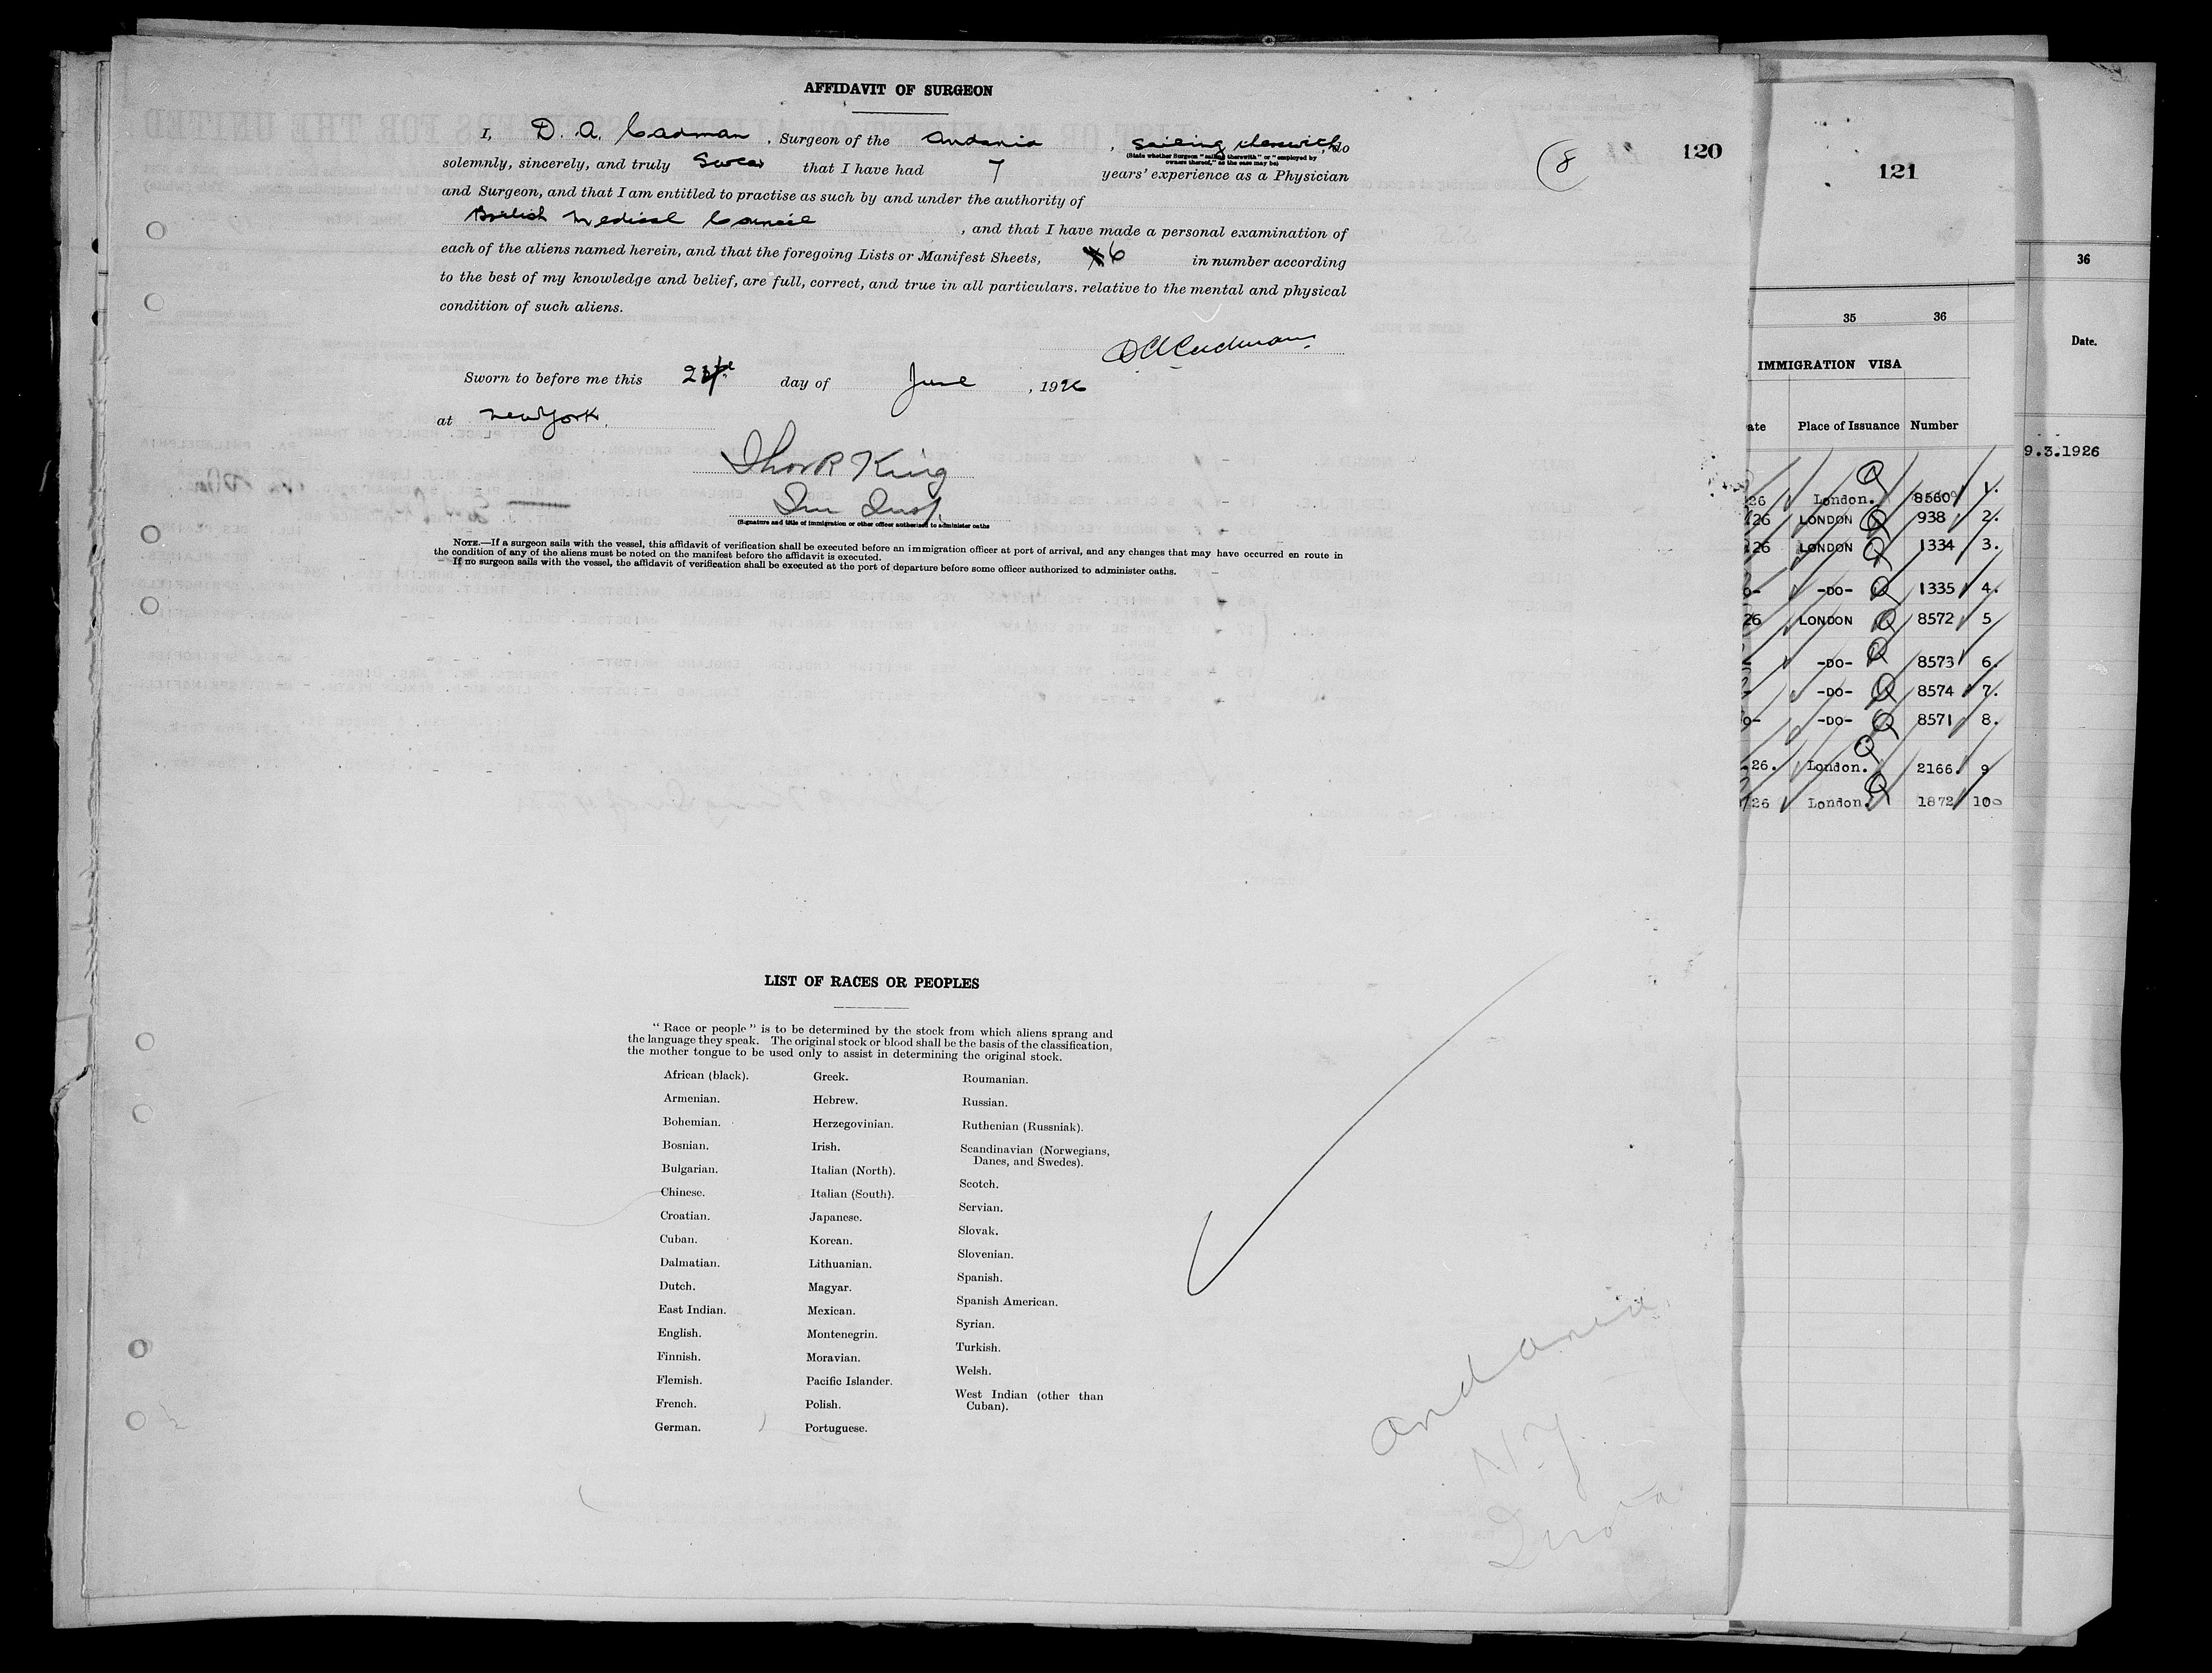 AFFIDAVIT OF SURGEON
I, D. A. Cadman, Surgeon of the Andania, sailing therewith, do
(State whether Surgeon "sailing therewith" or "employed by
owners thereof," as the case may be)
solemnly, sincerely, and truly Swear that I have had 7 years' experience as a Physician
and Surgeon, and that I am entitled to practise as such by and under the authority of
British Medical Council, and that I have made a personal examination of
each of the aliens named herein, and that the foregoing Lists or Manifest Sheets, 6 in number according
to the best of my knowledge and belief, are full, correct, and true in all particulars, relative to the mental and physical
condition of such aliens.
D A Cadman
Sworn to before me this day of June, 1926
at New York.
Thos R King
Im Insp.
(Signature and title of immigration or other officer authorised to administer oaths
NOTE.—If a surgeon sails with the vessel, this affidavit of verification shall be executed before an immigration officer at port of arrival, and any changes that may have occurred en route in
the condition of any of the aliens must be noted on the manifest before the affidavit is executed.
If no surgeon sails with the vessel, the affidavit of verification shall be executed at the port of departure before some officer authorized to administer oaths.
8
120
LIST OF RACES OR PEOPLES
"Race or people" is to be determined by the stock from which aliens sprang and
the language they speak. The original stock or blood shall be the basis of the classification,
the mother tongue to be used only to assist in determining the original stock.
African (black).
Armenian.
Bohemian.
Bosnian.
Bulgarian.
Chinese.
Croatian.
Cuban.
Dalmatian.
Dutch.
East Indian.
English.
Finnish.
Flemish.
French.
German.
Greek.
Hebrew.
Herzegovinian.
Irish.
Italian (North).
Italian (South).
Japanese.
Korean.
Lithuanian.
Magyar.
Mexican.
Montenegrin.
Moravian.
Pacific Islander.
Polish.
Portuguese.
Roumanian.
Russian.
Ruthenian (Russniak).
Scandinavian (Norwegians,
Danes, and Swedes).
Scotch.
Servian.
Slovak.
Slovenian.
Spanish.
Spanish American.
Syrian.
Turkish.
Welsh.
West Indian (other than
Cuban).
Andania
N.Y
121
35 36
IMMIGRATION VISA
ate Place of Issuance Number
26 London. Q 8560 1.
26 LONDON Q 938 2.
26 LONDON Q 1334 3.
o- -DO- Q 1335 4.
26 LONDON Q 8572 5
-DO- Q 8573 6.
-DO- Q 8574 7.
o- -DO- Q 8571 8.
.26. London. Q 2166. 9
/26 London. Q 1872 10
36
Date.
9.3.1926